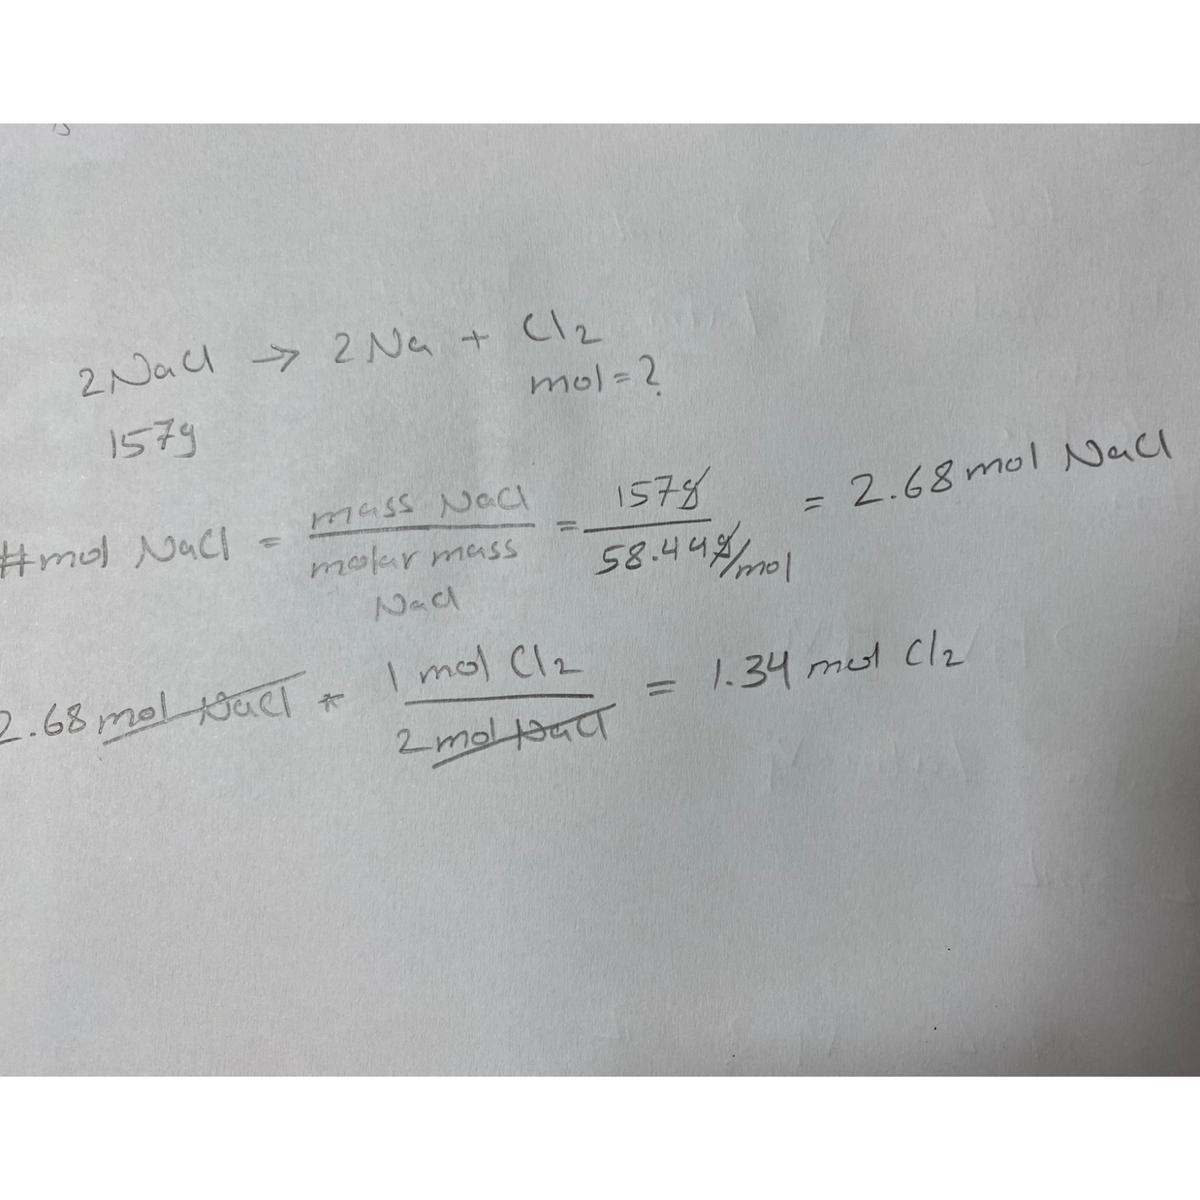 2NaCl → 2Na + Cl2
mol = ?
157g
#mol NaCl = mass NaCl / molar mass NaCl = 157g / 58.44g/mol = 2.68 mol NaCl
2.68 mol NaCl * 1 mol Cl2 / 2 mol NaCl = 1.34 mol Cl2